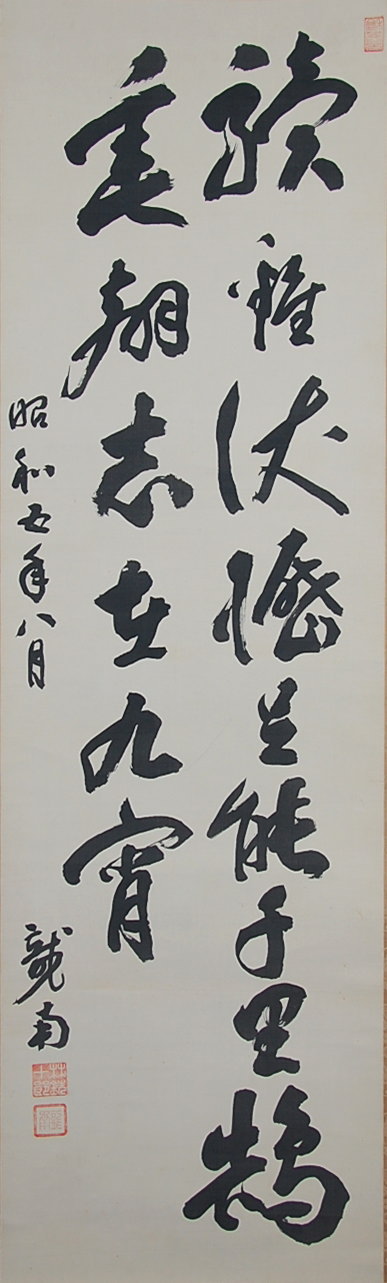 驥雖伏櫪足能千里鵠
翮志在九霄
昭和五年八月
龍南